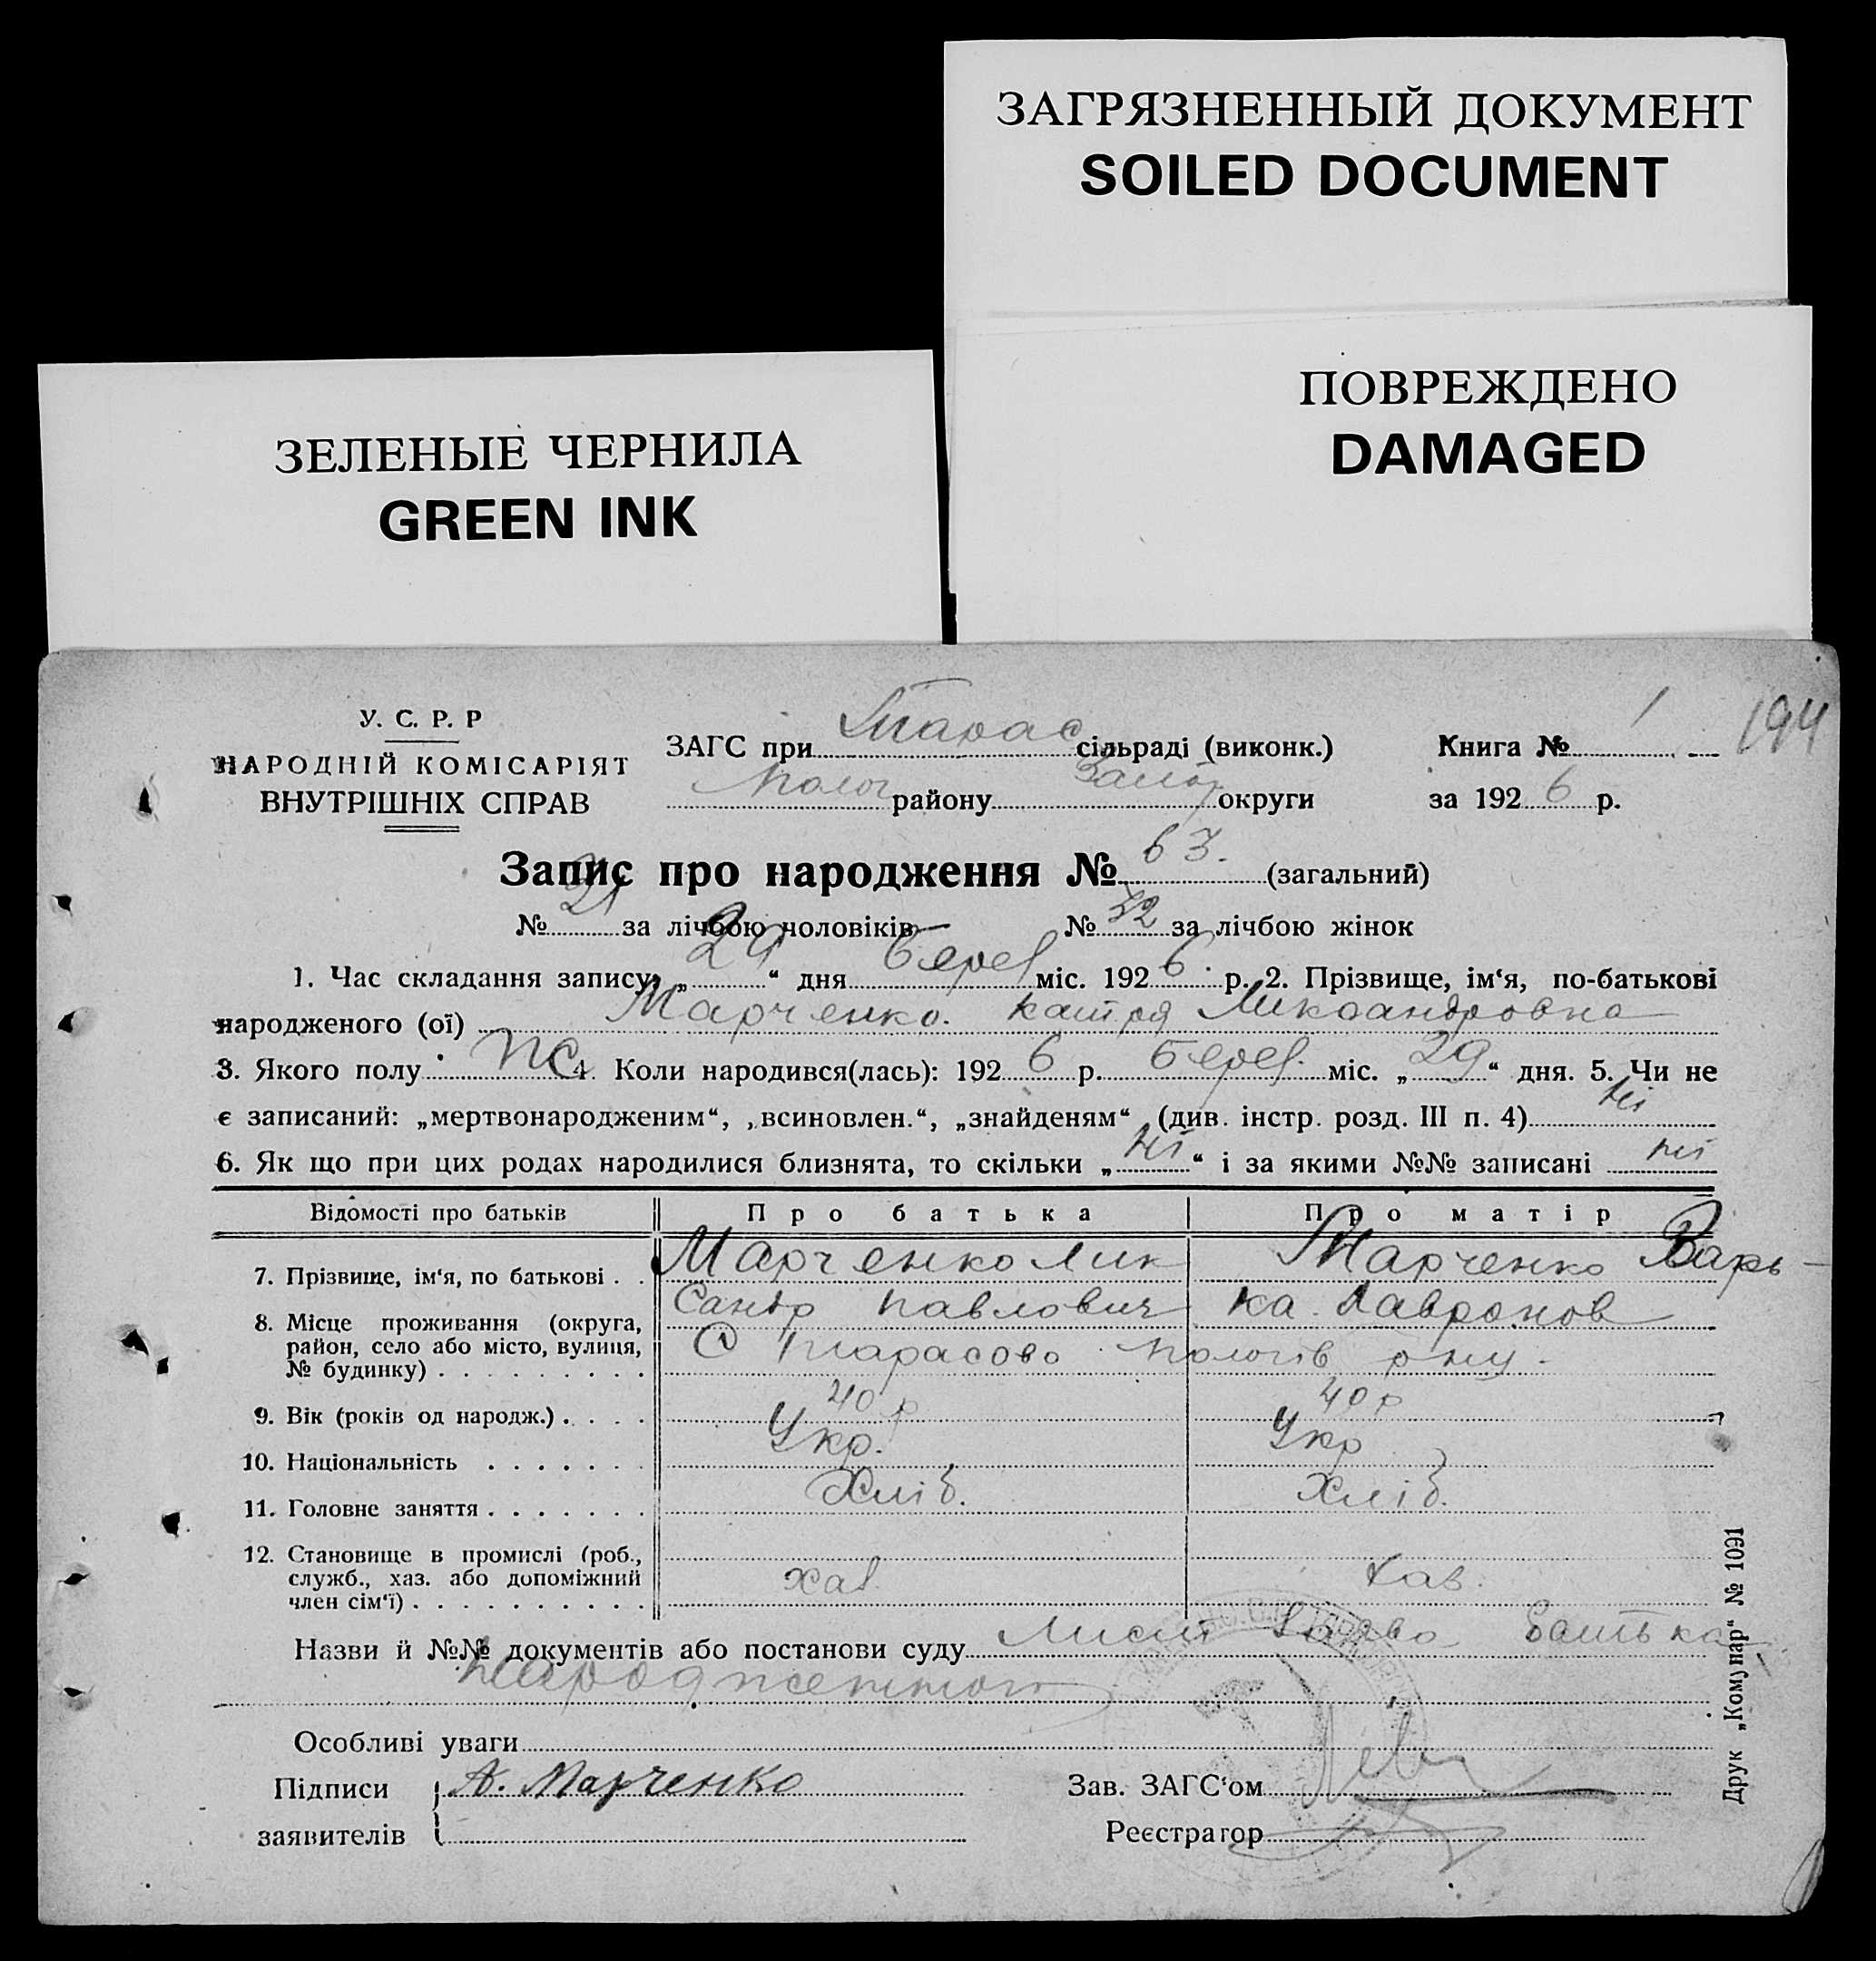 ЗАГРЯЗНЕННЫЙ ДОКУМЕНТ
SOILED DOCUMENT
ПОВРЕЖДЕНО
DAMAGED
ЗЕЛЕНЫЕ ЧЕРНИЛА
GREEN INK
У. С. Р. Р
НАРОДНІЙ КОМІСАРІЯТ
ВНУТРІШНІХ СПРАВ
ЗАГС при Тарас сільраді (виконк.) Книга № 1 194
Полог району Запор округи за 192 6 р.
Запис про народження № 63. (загальний)
№ 31 за лічбою чоловіків № 32 за лічбою жінок
1. Час складання запису „ 29 “ дня Берез міс. 192 6 р. 2. Прізвище, ім‘я, по-батькові
народженого (ої) Марченко. Катря Ликсандровна
3. Якого полу жс 4. Коли народився(лась): 192 6 р. Берез. міс. „ 29 “ дня. 5. Чи не
є записаний: „мертвонародженим“, „всиновлен.“, „знайденям“ (див. інстр. розд. III п. 4) ні
6. Як що при цих родах народилися близнята, то скільки „ ні “ і за якими №№ записані ні
Відомості про батьків Про батька Про матір
7. Прізвище, ім‘я, по батькові . . Марченко Лик Марченко Варь-
Сандр Павлович ка
8. Місце проживання (округа,
район, село або місто, вулиця, С Тарасово Пологів р ну.
№ будинку) . . . . . . . . .
9. Вік (років од народж.) . . . . 40 р 40 р
10. Національність . . . . . . . Укр. Укр
11. Головне заняття . . . . . . . Хліб. Хліб.
12. Становище в промислі (роб.,
служб., хаз. або допоміжний хаз. хаз.
член сім‘ї) . . . . . . . . . .
Назви й №№ документів або постанови суду Батька
Особливі уваги
Підписи А. Марченко Зав. ЗАГС‘ом
заявителів Реєстратор
Друк „Комунар“ № 1091